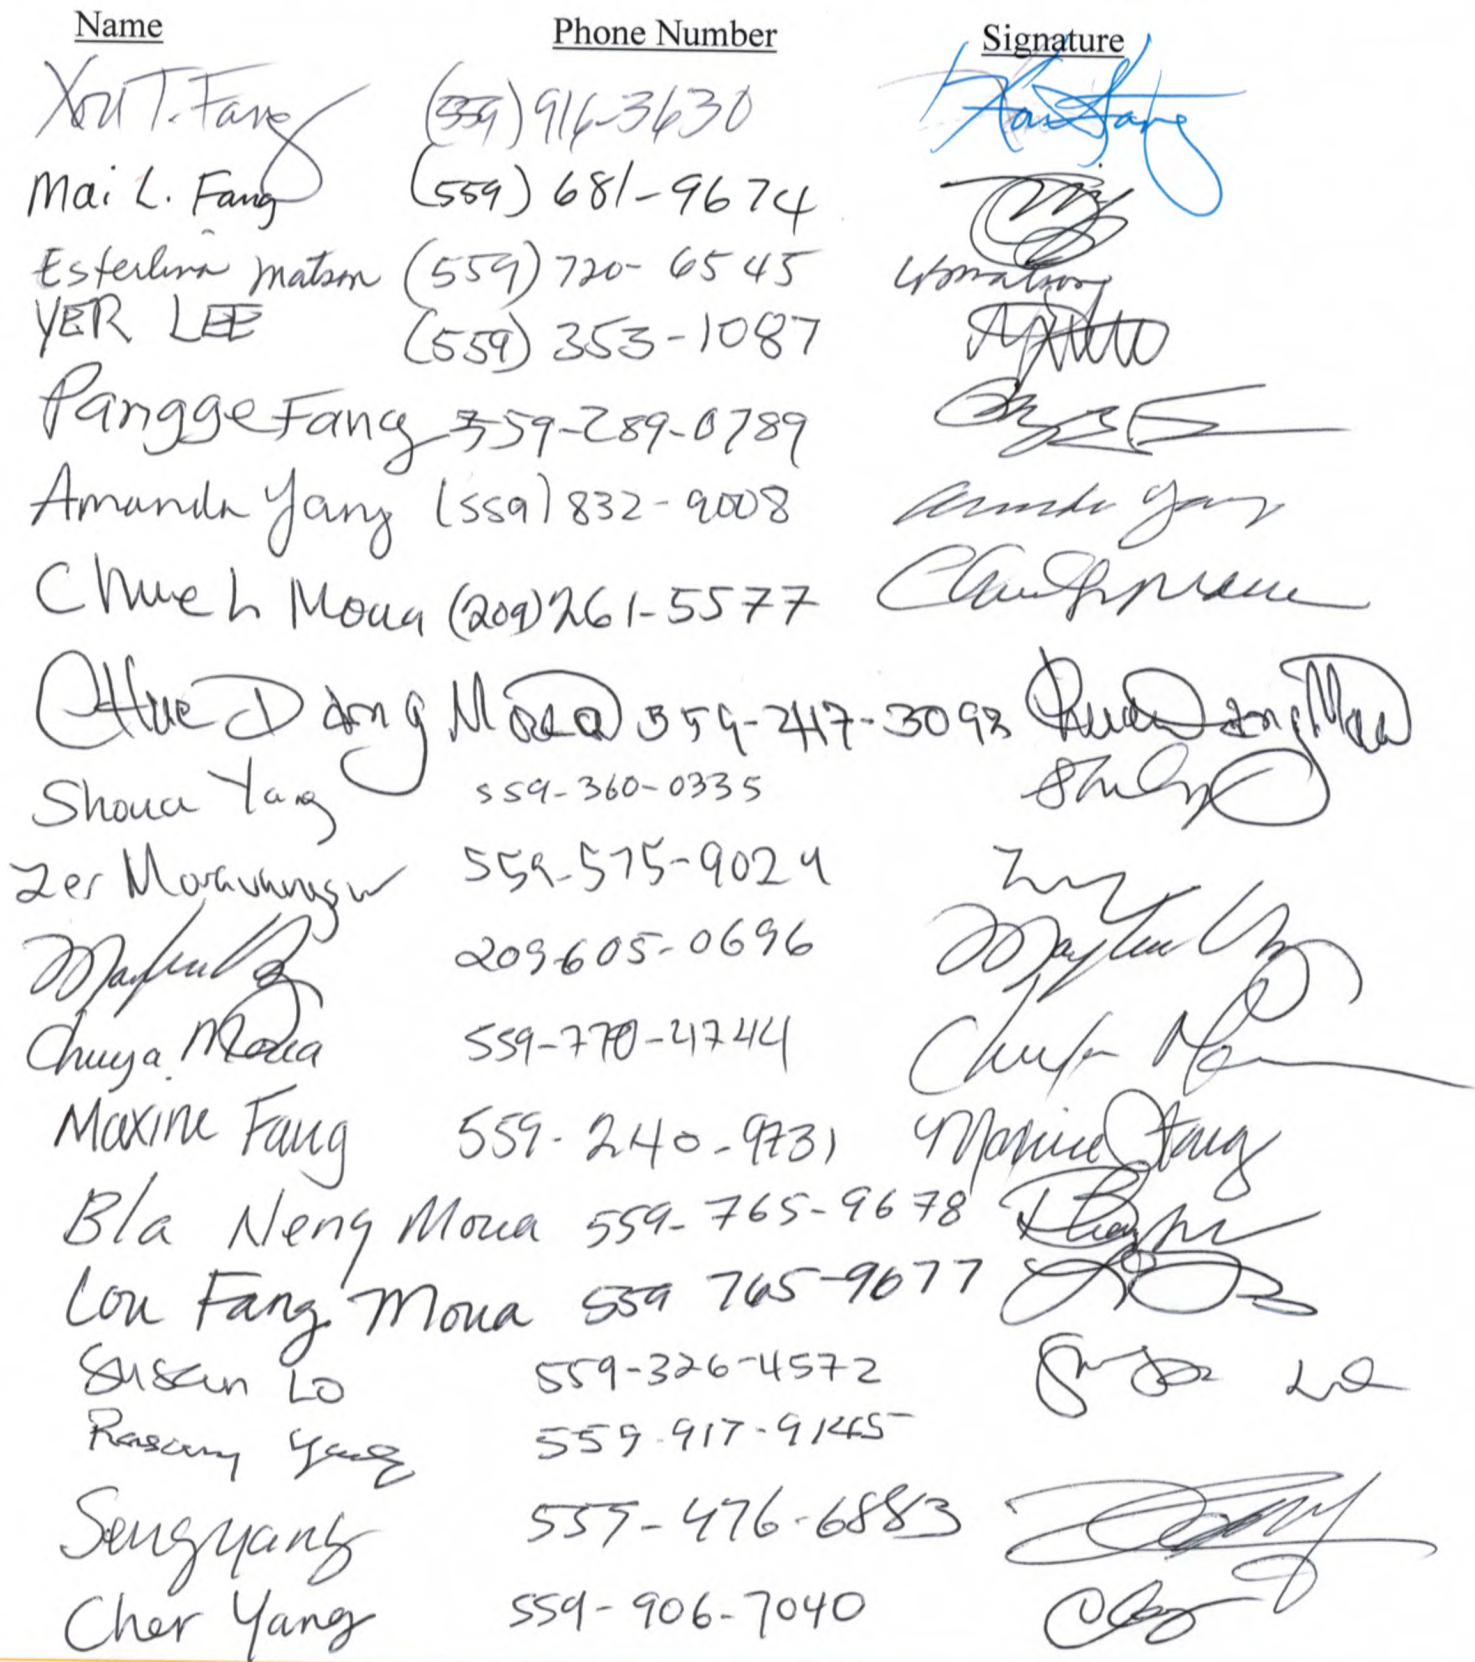 Name Phone Number Signature
Xou T. Fang (559) 916-3630
Mai L. Fang (559) 681-9674
Esterlina Matson (559) 720-6545
YER LEE (559) 353-1087
Pangge Fang 559-289-0789
Amanda Yang (559) 832-9008 Amanda Yang
Chue L Moua (209) 261-5577
Chue Dang Moua 559-417-3093 Chue Dang Moua
Shoua Yang 559-360-0335
Zer 559-575-9024
209-605-0696
Chuya Moua 559-770-4744
Maxine Fang 559-240-9731 Maxine Fang
Bla Neng Moua 559-765-9678
Lou Fang Moua 559 765-9677
Susan Lo 559-326-4572
Yang 559-917-9145
Seng yang 559-476-6883
Cher Yang 559-906-7040